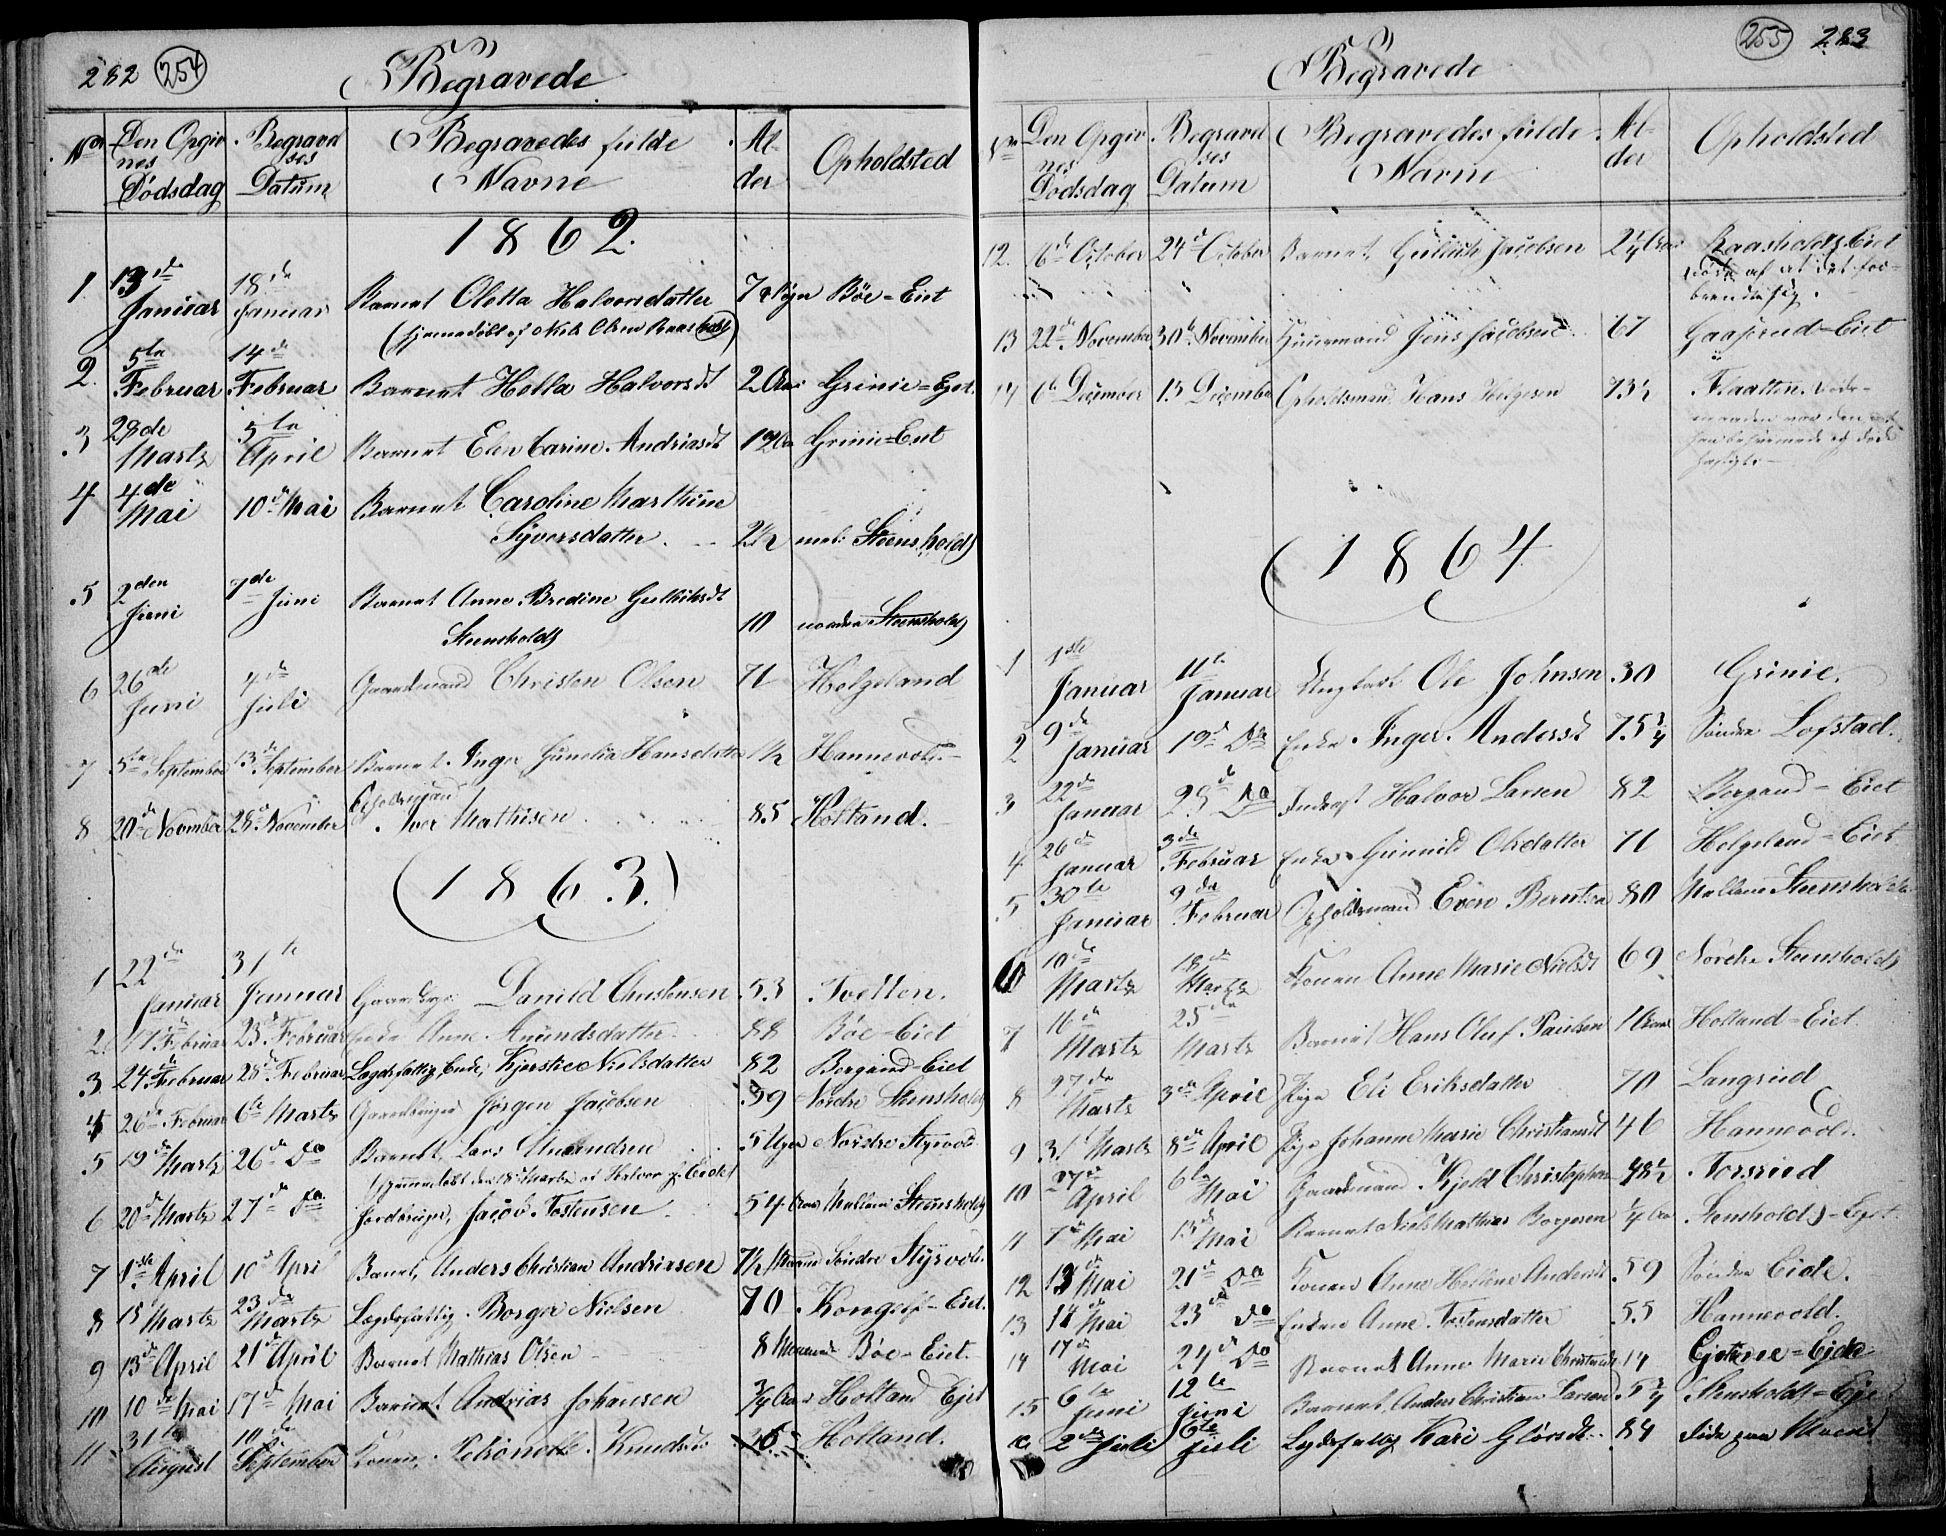 282 254 Begravede
No Den Opgivnes Dødsdag Begravelses Datum Begravedes fulde Navne Alder Opholdsted
1862.
1 13de Januar 18de Januar Barnet Oletta Halvorsdatter 7 Døgn Böe-Eiet
(hjemmedöbt af Niels Olsen
2. 5te Februar 14de Februar Barnet Hella Halvorsdt 2 Aar Grinie-Eyet.
3 28de Martz 5te April Barnet Elen Carine Andriasdt Grinie-Eiet
4 4de Mai 10de Mai Barnet Caroline Marthine
Syversdatter 2½ mel: Steensholdt
5 2den Juni 7de Juni Barnet Anne Bredine Gulliksdt
Steensholdt 10 nordre Steensholdt
6 26de Juni 4de Juli Gaardmand Christen Olsen 71 Helgeland
7 5te September 13de September Barnet Inger Gunelia Hansdatter 1½ Hannevold
8. 20de November 28de November Opholdsmand
Iver Mathisen 85 Holtand.
(1863.)
1 22de Januar 31te Januar Daniel Christensen 53 Tvetten.
2. 17de Februar 23de Februar Enke Anne Amundsdatter 88 Böe-Eiet
3. 24de Februar 28de Februar Lægdsfattig, Enke, Kjerstie Nielsdatter 82 Bergand-Eiet
4 26de Februar 6te Martz Gaardbruger Jörgen Jacobsen 59 Nordre Steensholdt
5 19de Martz 26de Do Barnet Lars 5 Uger Nordre Styrvold
(hjemmedöbt den 18de Martz af Halvor
6 20de Martz 27de Do Jordbruger, Jacob Tostensen 54 Aar Mellem Steensholdt
7 1ste April 10de April Barnet, Anders Christian Andriasen 7½ Maaned Söndre Styrvold
8 15 Martz 23de Martz Lægdsfattig. Borger Nielsen 70 Kongelf-Eiet.
9 13de April 21de April Barnet Mathias Olsen 8 Maaned Böe-Eiet.
10 10de Mai 17de Mai Barnet Andrias Johansen ¾ Aar Holtand Ejet
11 31te August 10de September Konen, Knudsdt. Holtand.
Begravede 255 283
No Den Opgivnes Dødsdag Begravelses Datum Begravedes fulde Navne Alder Opholdsted
12. 6de October 24de October Barnet Gullik Jacobsen 2¼ Aar Raasholdt Eiet
döde af at det for-
brendte sig.
13 22de November 30te November Huusmand Jens Jacobsen 67 Gaaserud-Eiet
14 6te December 15 December Opholdsmand Hans Helgesen 73½ Flaatten.
(1864)
1 1ste Januar 11te Januar Ungkarl Ole Johnsen 30 Grinie.
2 9de Januar 19de Do Enke Inger Andersdt 75¾ Söndre Lofstad.
3 22de Januar 29de Do Inderst Halvor Larsen 82 Bergand-Eiet
4 26de Januar 3de Februar Enke Gunnild Olsdatter 71 Helgeland-Eiet
5 30te Januar 9de Februar Opholdsmand Even Berntsen 80 Mellem Steensholdt
6 10de Martz 18de Martz Konen Anne Marie Nielsdt 69 Nordre Steensholdt
7 16de Martz 25de Martz Barnet Hans Oluf Paulsen Holtand-Eiet.
8 27de Martz 3de April Pige Eli Eriksdatter 70 Langrud
9 31 Martz 8de April Pige Johanne Marie Christiansdt 46 Hannevold.
10 27de April 6te Mai Gaardmand Kjeld Christophersen 48½ Forsrod
11 7de Mai 15de Mai Barnet Niels Mathias Borgersen ¼ Aar Steensholdt-Ejet
12 13de Mai 21de Do Konen Anne Hellene Andersdt 59 Söndre Eide.
13 14de Mai 23de Do Enken Anne Tostensdatter 55 Hannevold.
14 17de Mai 24de Do Barnet Anne Marie Christiansdt 14 Gjetree-Ejde
15 6te Juni 12te Juni Barnet, Anders Christian Larsen 5¾ Steensholdt-Ejet
16 2den Juli 6te Juli Lægdsfattig Kari Glörsdt. 84 döde paa Moen